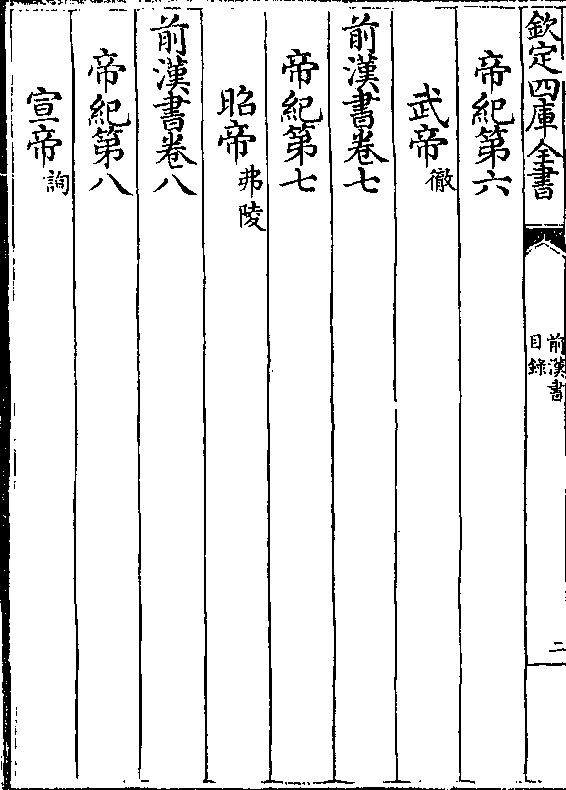 欽定四庫全書
前漢書
目錄
二
帝紀第六
武帝徹
前漢書卷七
帝紀第七
昭帝弗陵
前漢書卷八
帝紀第八
宣帝詢